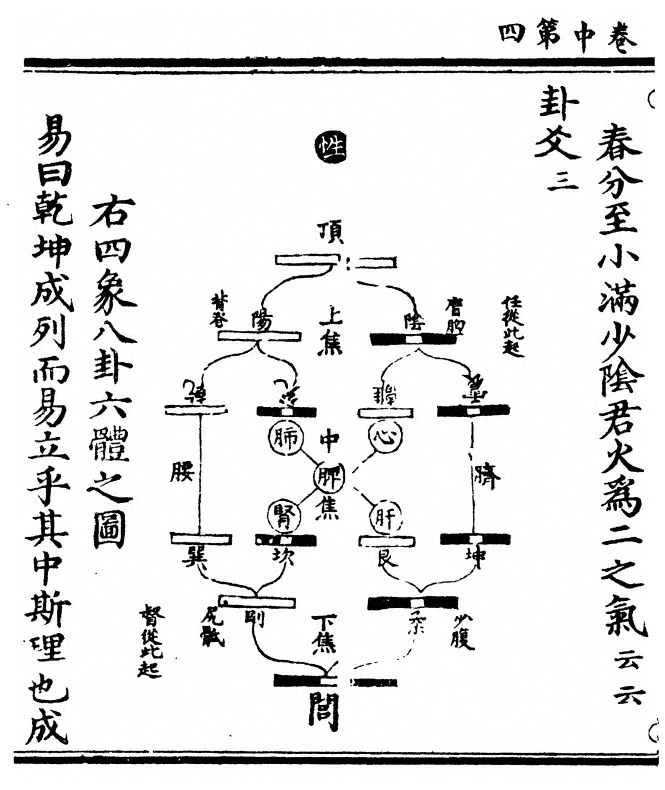 卷中第四
春分至小滿少陰君火爲二之氣云云
卦爻三
性
頂
上焦
陽
陰
背脊
膺胸
任從此起
肺
心
中焦
脾
腰
臍
腎
肝
巽
坎
艮
坤
剛
柔
尻骶
少腹
下焦
督從此起
閭
右四象八卦六體之圖
易曰乾坤成列而易立乎其中斯理也成